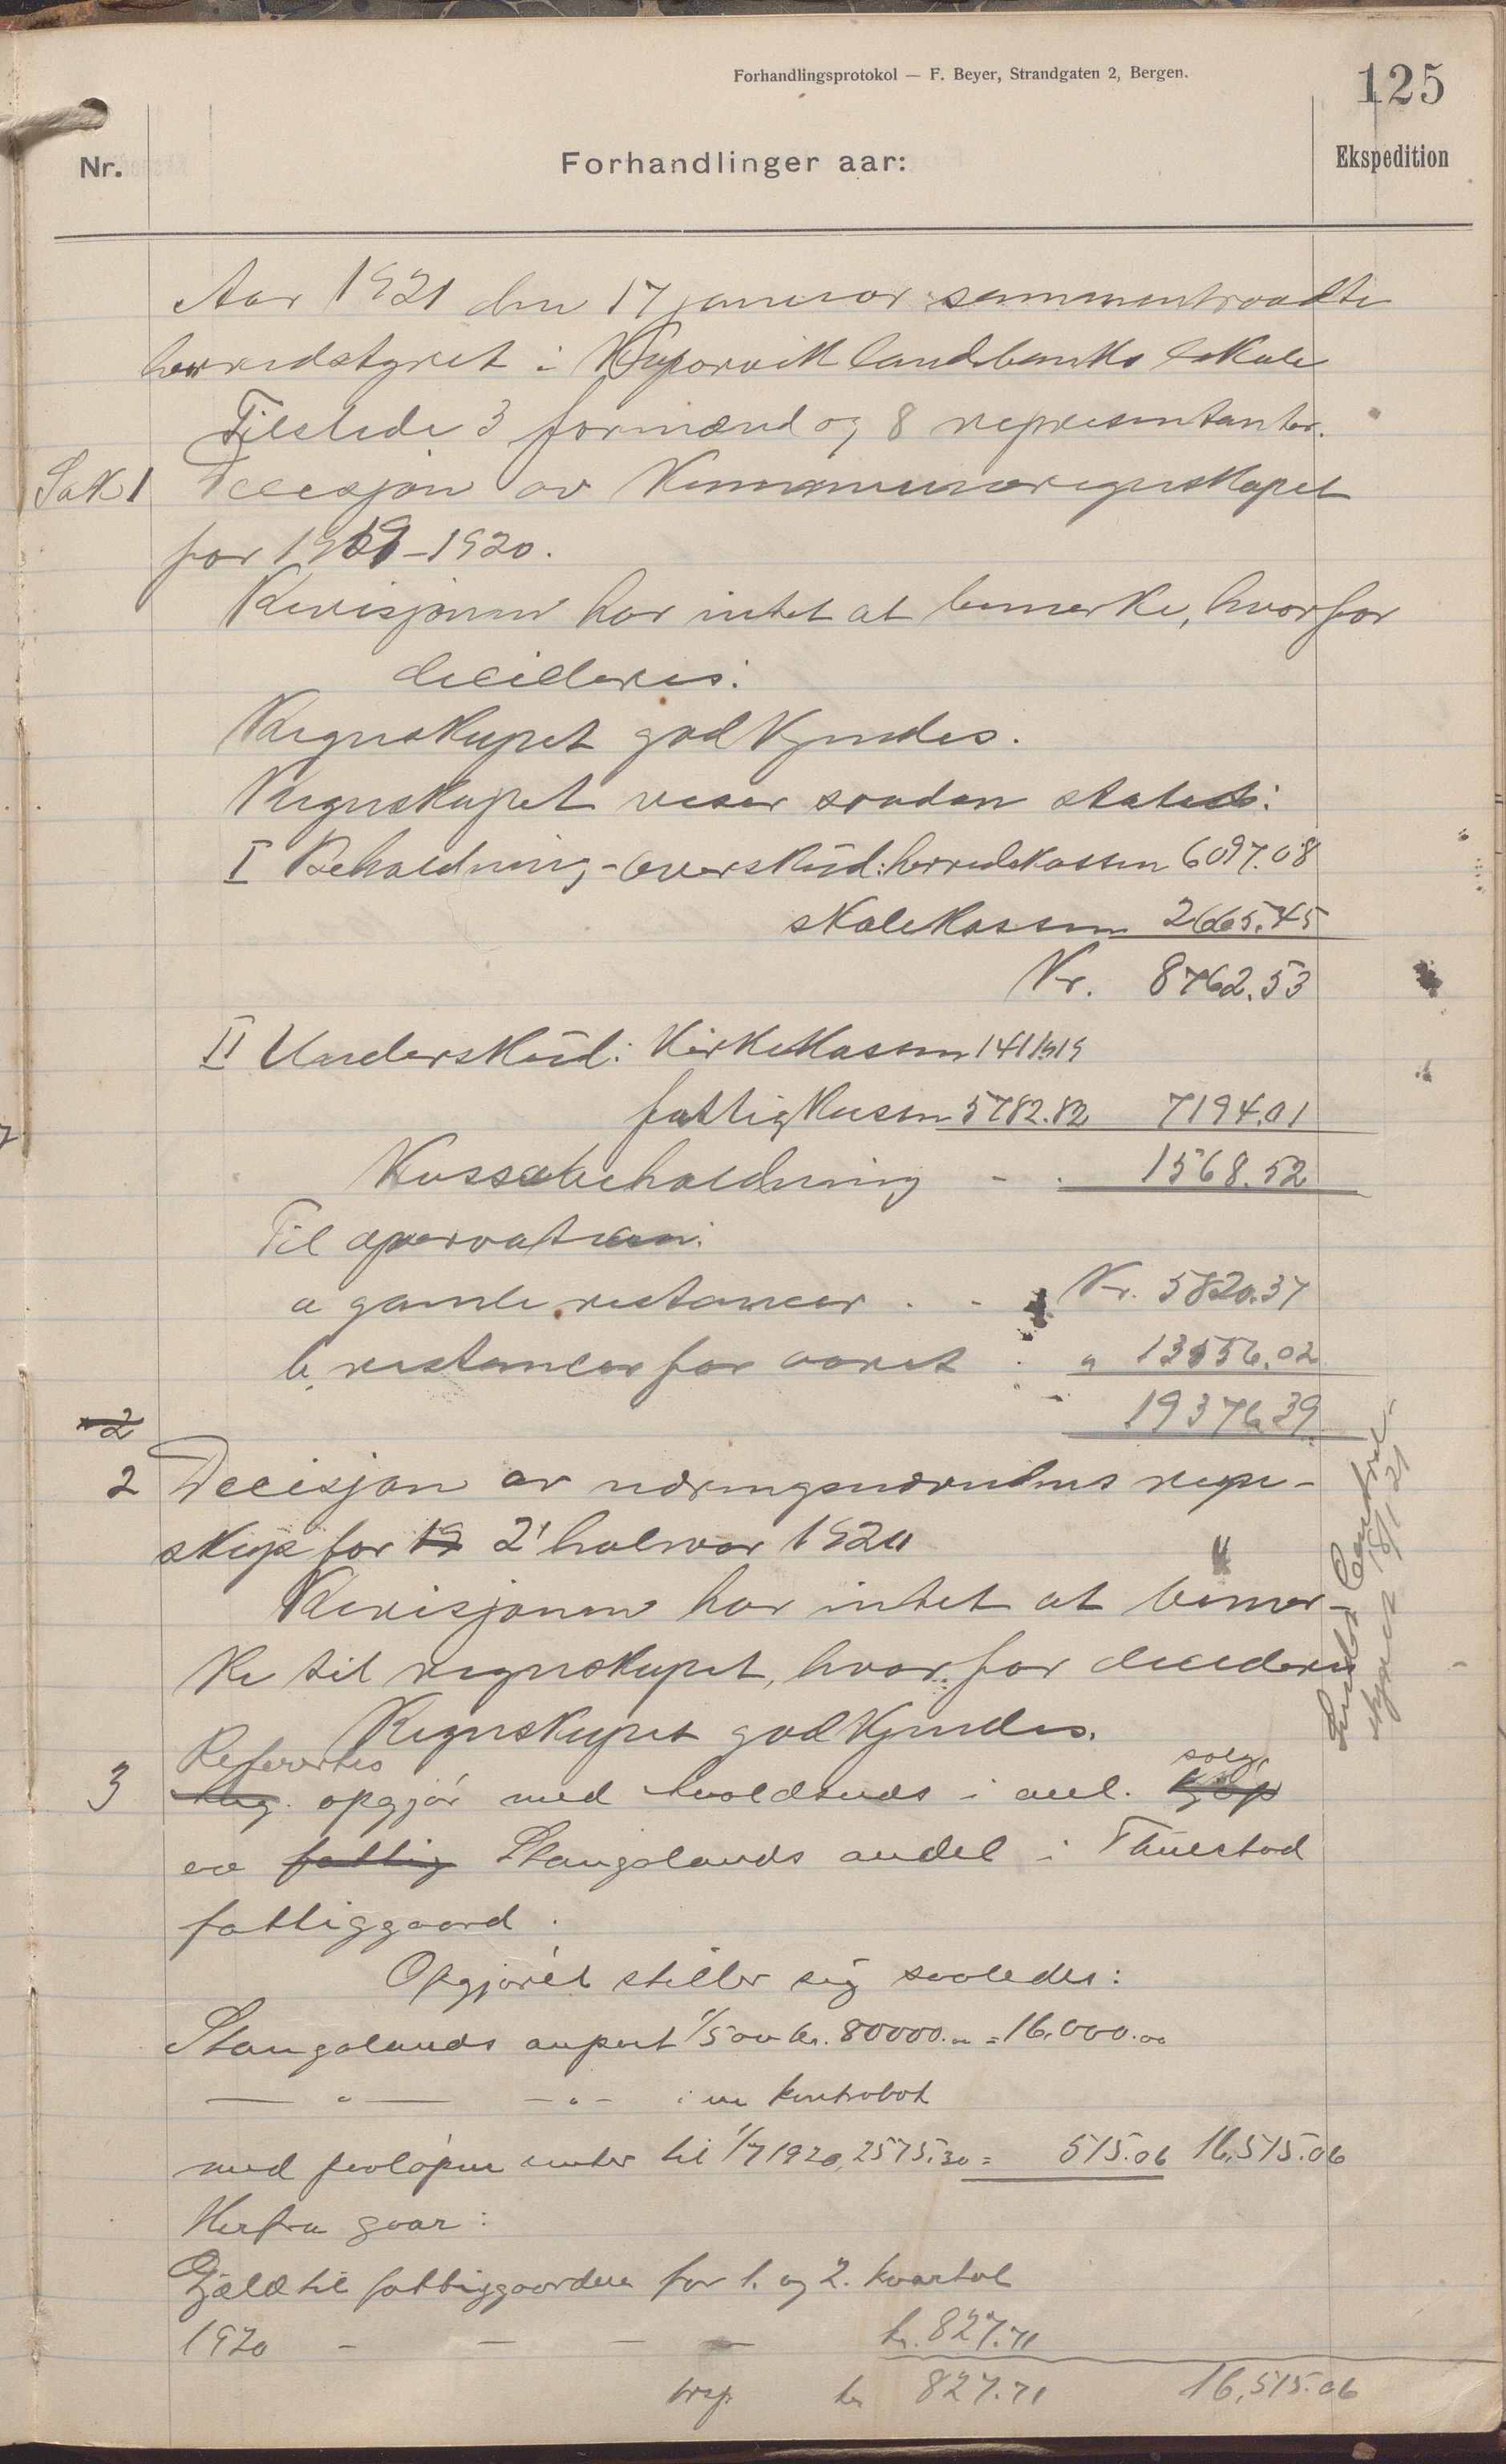 Forhandlingsprotokol — F. Beyer, Strandgaten 2, Bergen.
125
Nr.
Forhandlinger aar:
Ekspedition
Aar 1921 den 17 januar sammentraadte
herredstyret i Kopervik landsbanks lokale
Tilstede 3 formænd og 8 representanter.
Sak 1 Decisjon av Kommuneregnskapet
for 1919-1920.
Revisjonen har intet at bemerke, hvorfor
decideres:
Regnskapet godkjendes.
Regnskapet viser saadan status:
I Beholdning, - overskud: herredskassen 6097.08
skolekassen 2665.45
Kr. 8762.53
II Underskud: Kirkekassen 1411.19
fattigkassen 5782.82 7194.01
Kassabeholdning - . 1568.52
Til observation:
a gamle restancer . - Kr. 5820.37
b, restancer for aaret . " 13556.02
19376.39
2
2 Decisjon av næringsnævndens regn-
skap for 19 2' halvaar 1920
Revisjonen har intet at bemer-
ke til regnskapet, hvorfor decideres
Regnskapet godkjendes.
Refertes
3 opgjør med Avaldsnes i anl. kjøp salg
av fattig Stangalands andel i Thuestad
fattiggaard.
Opgjøret stiller sig saaledes:
Stangalands anpart 1/5 av kr. 80000.00 = 16.000.00
— " — - " - i en kontrabok
med paaløpne renter til 1/7 1920, 2575.30 = 515.06 16,515.06
Herfra gaar:
Gjæld til fattiggaarden for 1. og 2. kvartal
1920 - - - - kr. 827.71
trsp kr 827.71 16,515.06
18/1 21